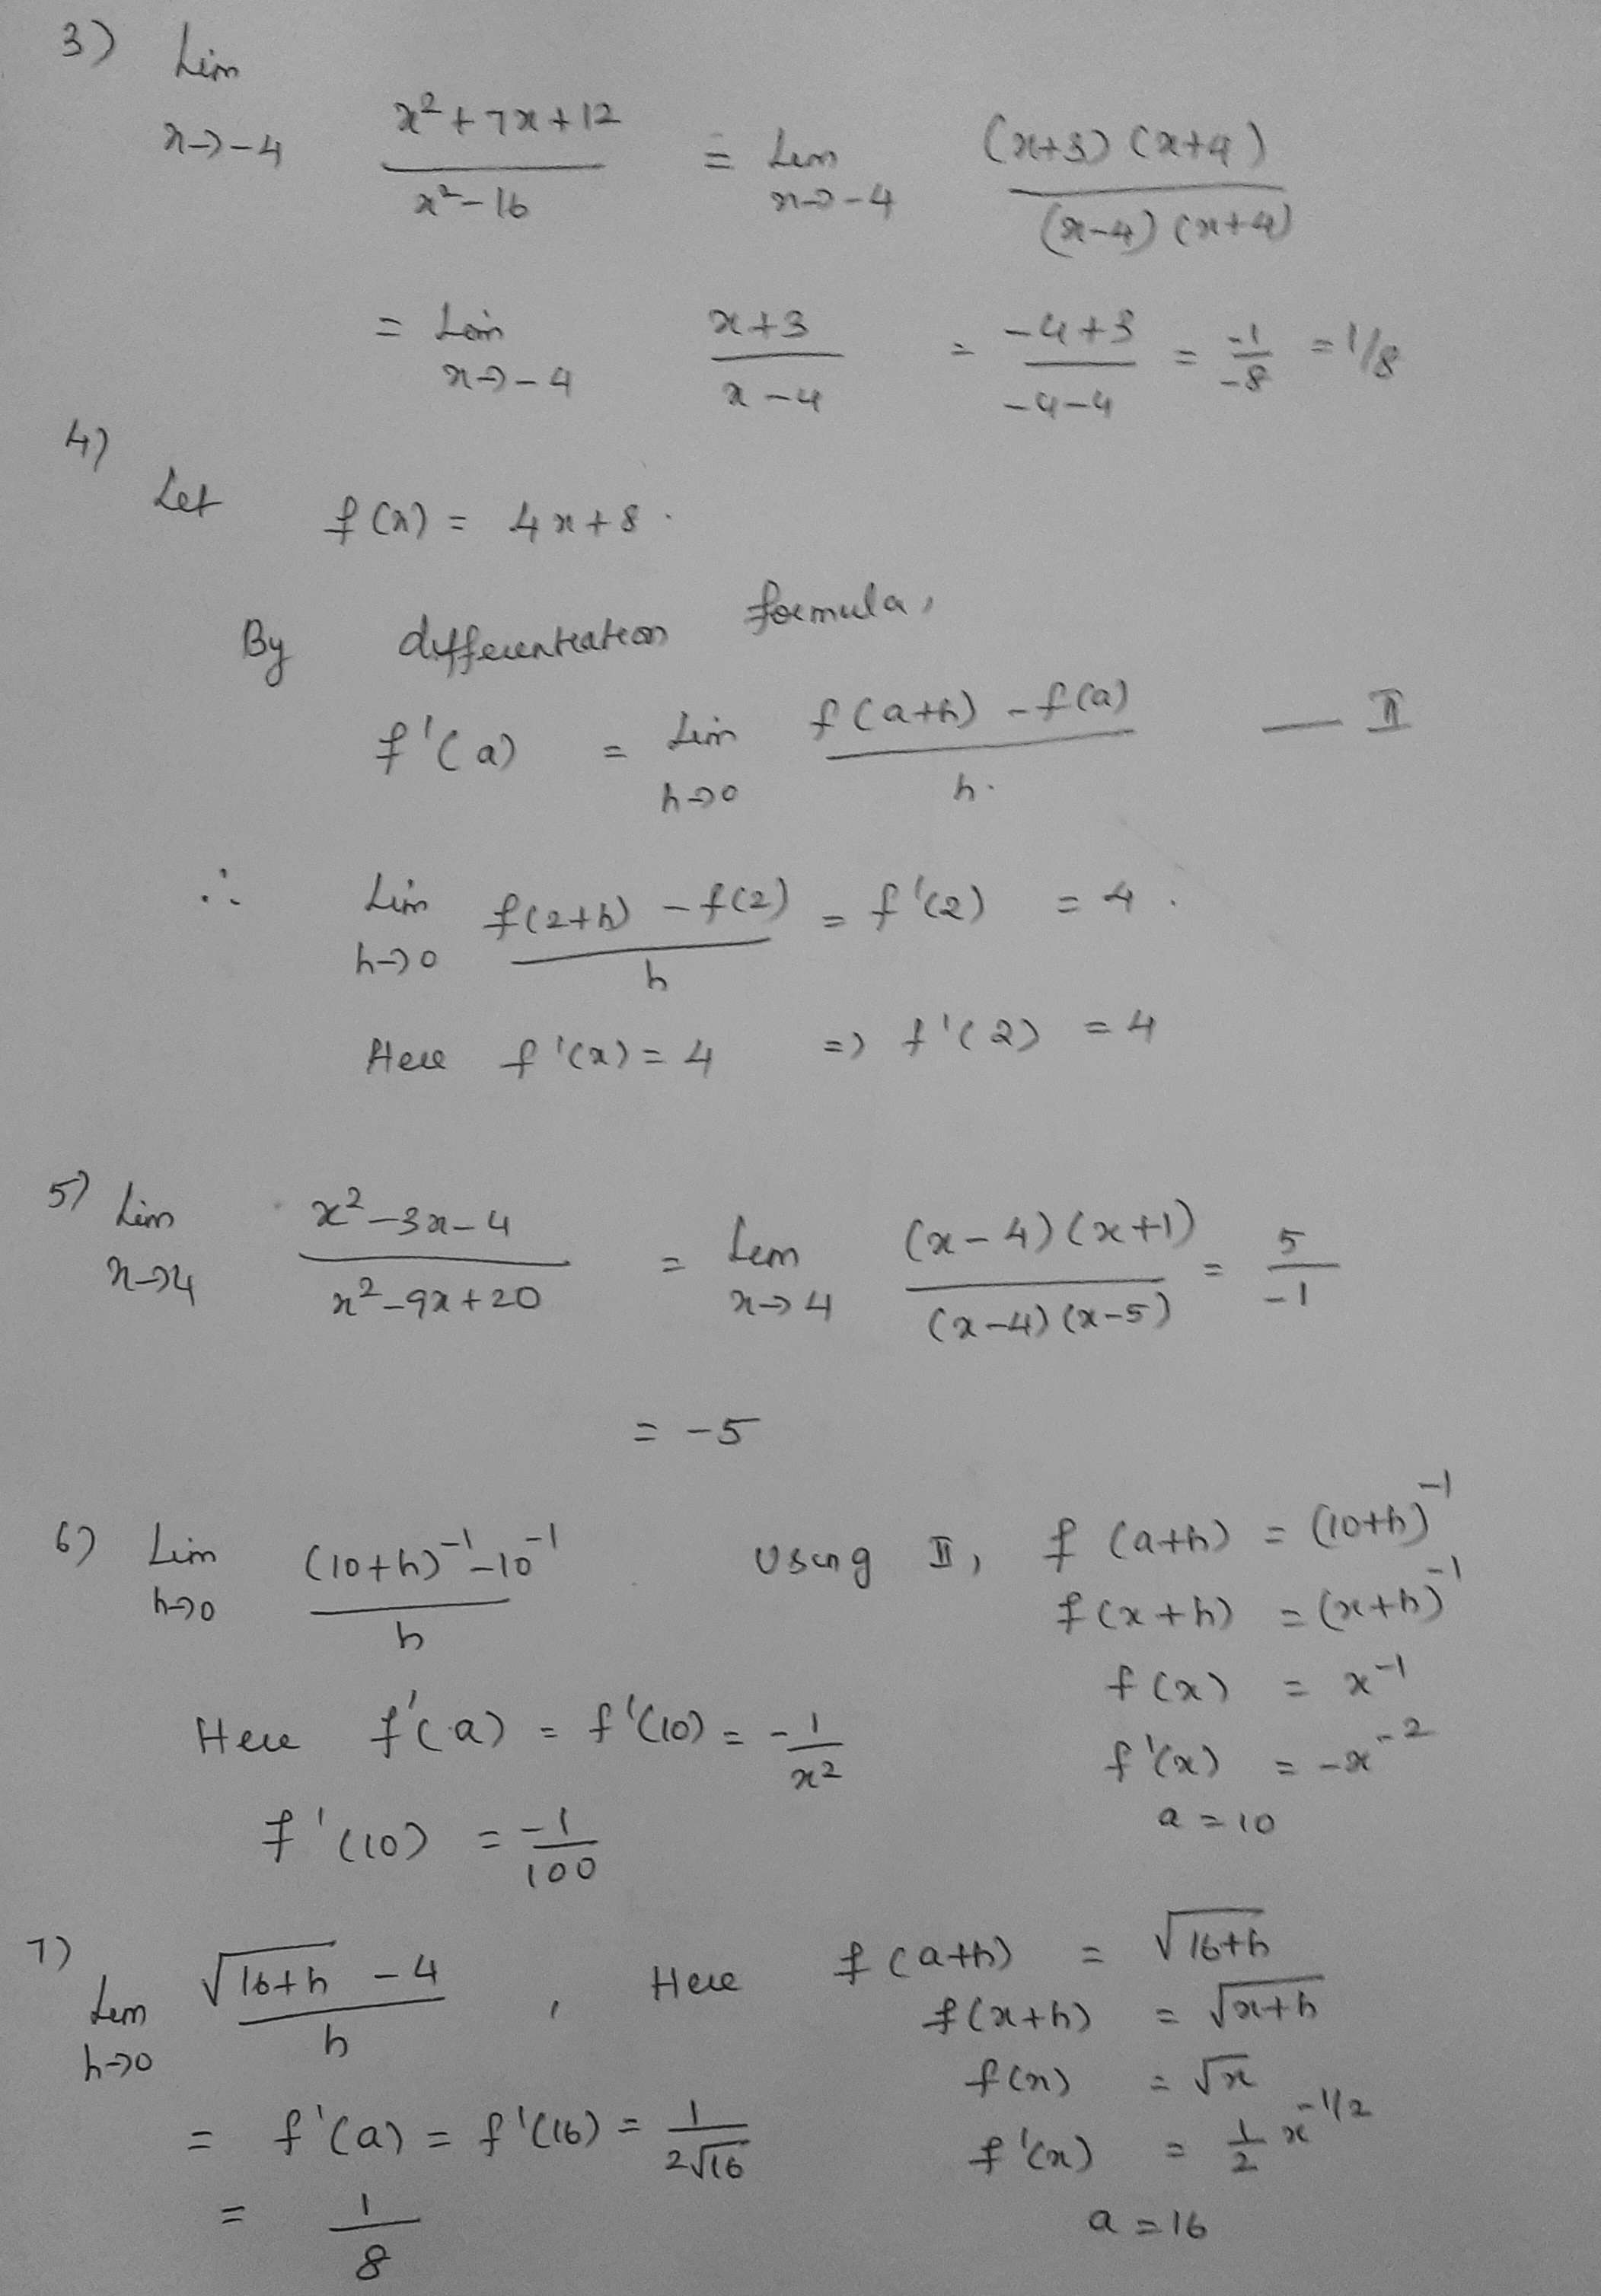 3) Lim x→-4 (x²+7x+12)/(x²-16) = Lim x→-4 (x+3)(x+4)/(x-4)(x+4)
= Lim x→-4 (x+3)/(x-4) = (-4+3)/(-4-4) = -1/-8 = 1/8
4)
Let f(x) = 4x+8.
By differentiation formula,
f'(a) = Lim h→0 (f(a+h) - f(a))/h. — II
∴ Lim h→0 (f(2+h) - f(2))/h = f'(2) = 4.
Here f'(x) = 4 => f'(2) = 4
5) Lim x→4 (x²-3x-4)/(x²-9x+20) = Lim x→4 (x-4)(x+1)/(x-4)(x-5) = 5/-1
= -5
6) Lim h→0 ((10+h)⁻¹-10⁻¹)/h Using II, f(a+h) = (10+h)⁻¹
f(x+h) = (x+h)⁻¹
f(x) = x⁻¹
Here f'(a) = f'(10) = -1/x²
f'(x) = -x⁻²
a = 10
f'(10) = -1/100
7) Lim h→0 (√(16+h) - 4)/h , Here f(a+h) = √(16+h)
f(x+h) = √(x+h)
f(x) = √x
= f'(a) = f'(16) = 1/(2√16)
f'(x) = 1/2 x^(-1/2)
a = 16
= 1/8